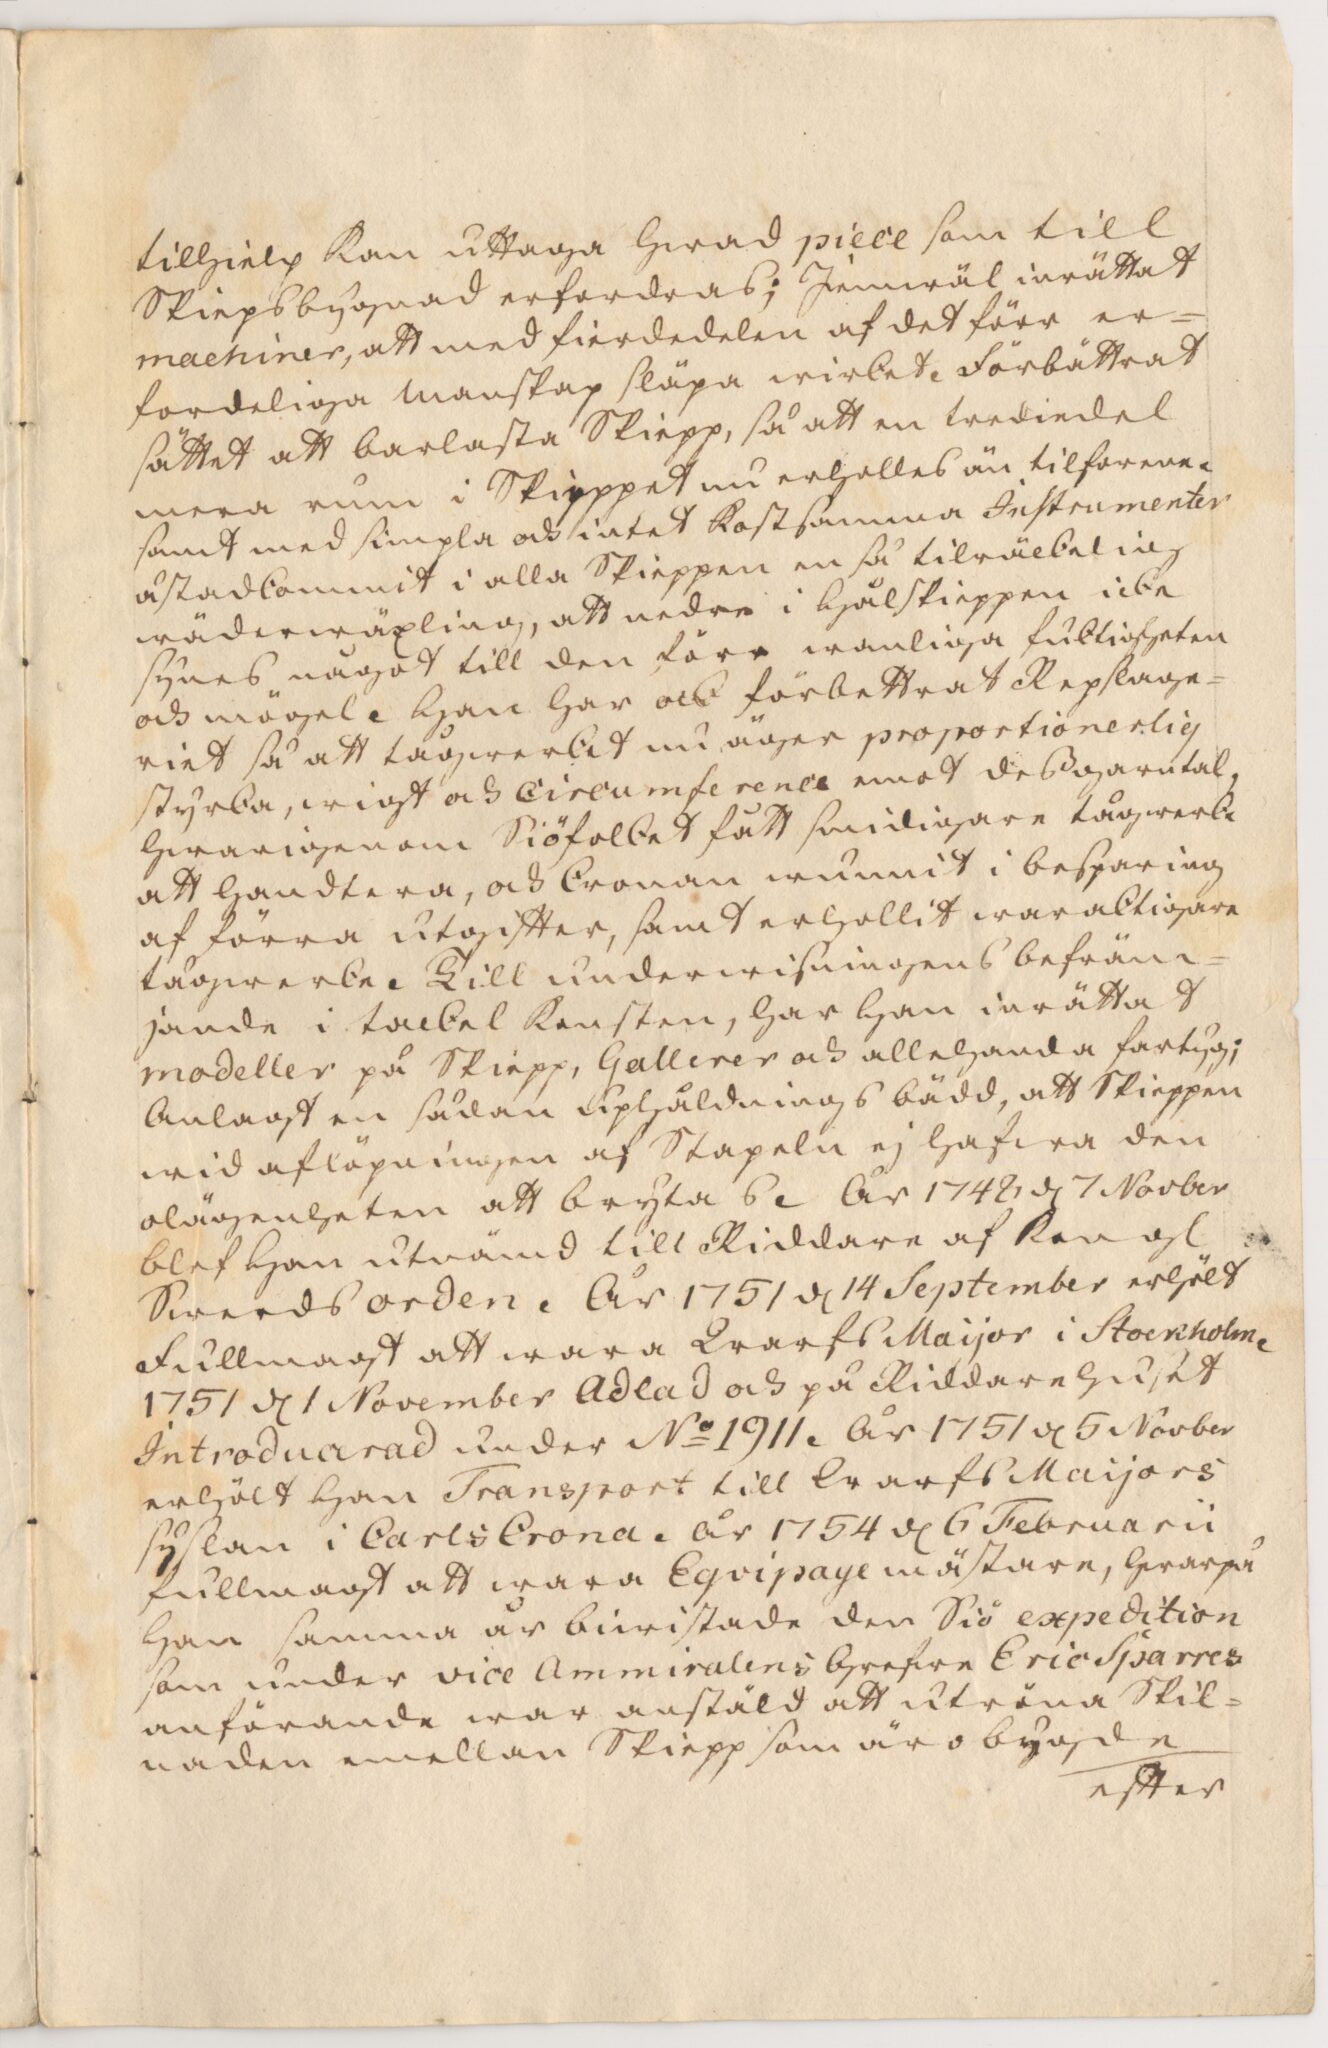 tillhielp Kan uttaga hwad piece som till
Skiepsbygnad erfordras; Jemwäl inrättat
machiner, att med fierdedelen af det förr er=
forderliga Manskap släpa wirket. Förbättrat
sättet att barlasta Skiepp, så att en trediedel
mera rum i Skieppet nu erhålles än tilforene.
samt med simpla och intet Kostsamma Instrumenter
åstadkommit i alla Skieppen en så tilräckelig
wäderwäxling, att nedre i hålskieppen icke
synes något till den förr wanliga fucktigheten
och mögel. Han har ock förbettrat Repslage=
riet så att tågwerket nu äger proportionerlig
styrka, wigt och Circumference emot dess garntal,
hwarigenom Siöfolket fått smidigare tågwerk
att handtera, och Cronan wunnit i besparing
af förra utgifter, samt erhollit waracktigare
tågwerke. Till underwisningens befräm=
jande i tackel Konsten, har han inrättat
modeller på Skiepp, Gallerer och allehanda fartyg;
Anlagt en sådan uphåldnings bädd, att Skieppen
wid aflöpningen af Stapeln ej hafwa den
olägenheten att bryta s. År 1748 d 7 Novber
blef han utnämd till Riddare af Kongl
Swerds orden. År 1751 d 14 September erhölt
Fullmagt att wara Warfs Maijor i Stockholm.
1751 d 1 November Adlad och på Riddarehuset
Introducerad under No 1911. År 1751 d 5 Novber
erhölt han Transport till Warfs Maijors
syslan i CarlsCrona. År 1754 d 6 Februarii
fullmagt att wara Eqvipage mästare, hwarpå
han samma år biwistade den Siö expedition
som under vice Ammiralens Grefwe Eric Sparres
anförande war anstäld att utröna Skil=
naden emellan Skiepp som äro bygde
efter